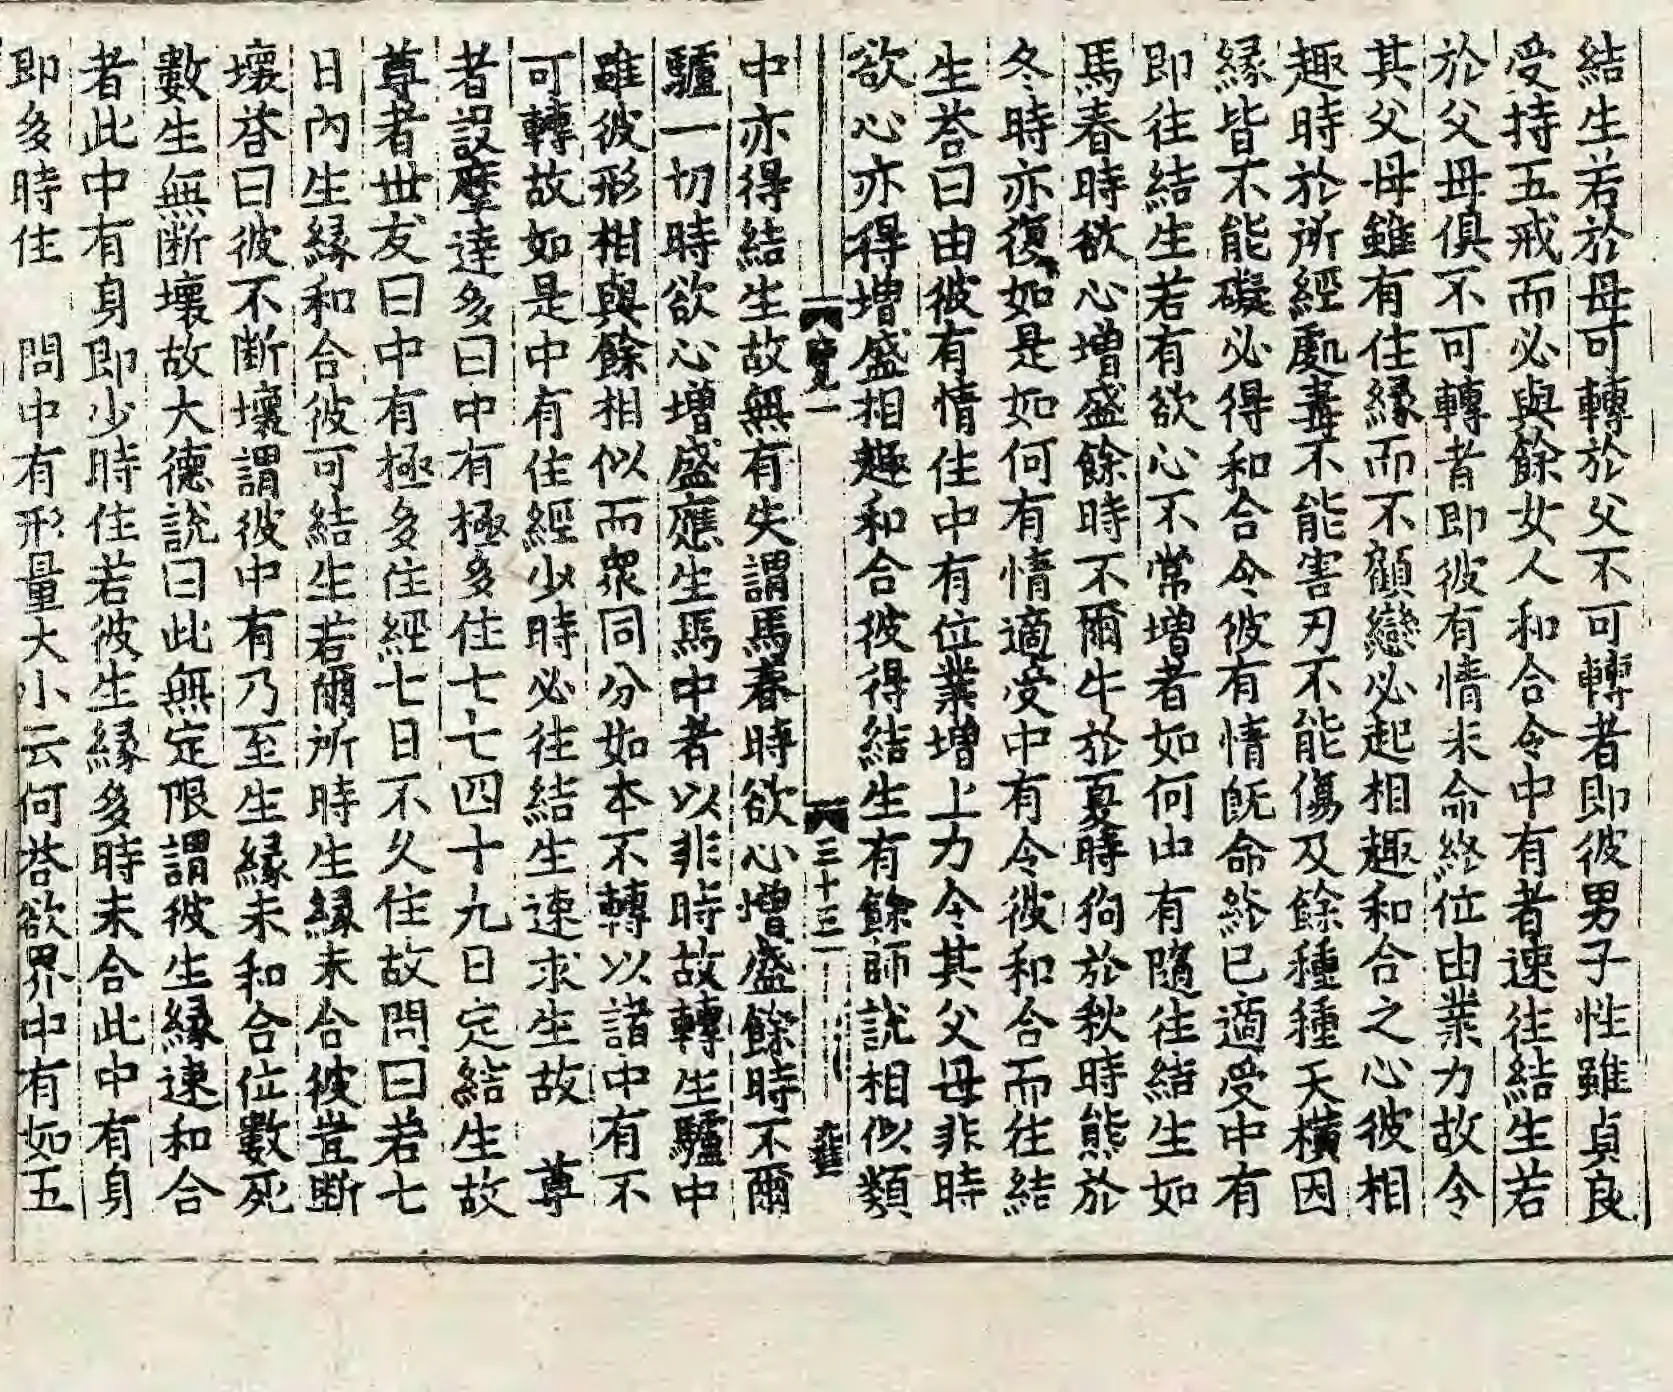 結生若於母可轉於父不可轉者即彼男子性雖貞良
受持五戒而必與餘女人和合令中有者速往結生若
於父母俱不可轉者即彼有情未命終位由業力故令
其父母雖有住緣而不顧戀必起相趣和合之心彼相
趣時於所經處毒不能害刃不能傷及餘種種夭橫因
緣皆不能礙必得和合令彼有情既命終已適受中有
即往結生若有欲心不常增者如何由有隨往結生如
馬春時欲心增盛餘時不爾牛於夏時狗於秋時熊於
冬時亦復如是如何有情適受中有令彼和合而往結
生荅曰由彼有情住中有位業增上力令其父母非時
欲心亦得增盛相趣和合彼得結生有餘師說相似類
一 三十三
中亦得結生故無有失謂馬春時欲心增盛餘時不爾
驢一切時欲心增盛應生馬中者以非時故轉生驢中
雖彼形相與餘相似而眾同分如本不轉以諸中有不
可轉故如是中有住經少時必往結生速求生故 尊
者設摩達多曰中有極多住七七四十九日定結生故
尊者世友曰中有極多住經七日不久住故問曰若七
日內生緣和合彼可結生若爾所時生緣未合彼豈斷
壞荅曰彼不斷壞謂彼中有乃至生緣未和合位數死
數生無斷壞故大德說曰此無定限謂彼生緣速和合
者此中有身即少時住若彼生緣多時未合此中有身
即多時住 問中有形量大小云何荅欲界中有如五